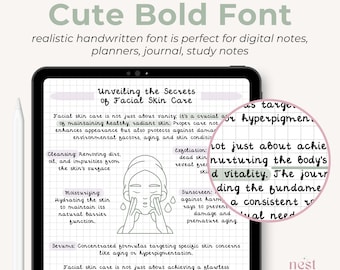 Cute Bold Font
realistic handwritten font is perfect for digital notes,
planners, journal, study notes
Unveiling the Secrets
of Facial Skin Care
Facial skin care is not just about vanity; it's a crucial
of maintaining healthy, radiant skin. Proper care not
enhances appearance but also protects against
environmental factors, aging and skin conditions.
Cleansing: Removing dirt,
oil, and impurities from
the skin's surface.
Exfoliation:
dead skin
Moisturizing:
Hydrating the skin
to maintain its
natural barrier
function.
Sunscreen:
against harm
rays to prevent
damage and
premature aging.
Serums: Concentrated formulas targeting specific skin concerns
like aging or hyperpigmentation.
Facial skin care is not just about achieving a flawless
as targe
or hyperpigment
not just about achie
nurturing the body's
d vitality. The journ
ding the fundame
a consistent ro
dual need
nest